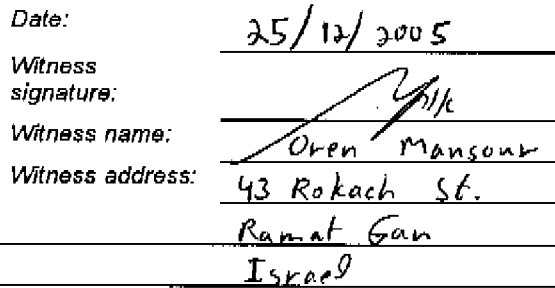 Date: 25/12/2005
Witness
signature:
Witness name: Oren Mansour
Witness address: 43 Rokach St.
Ramat Gan
Israel